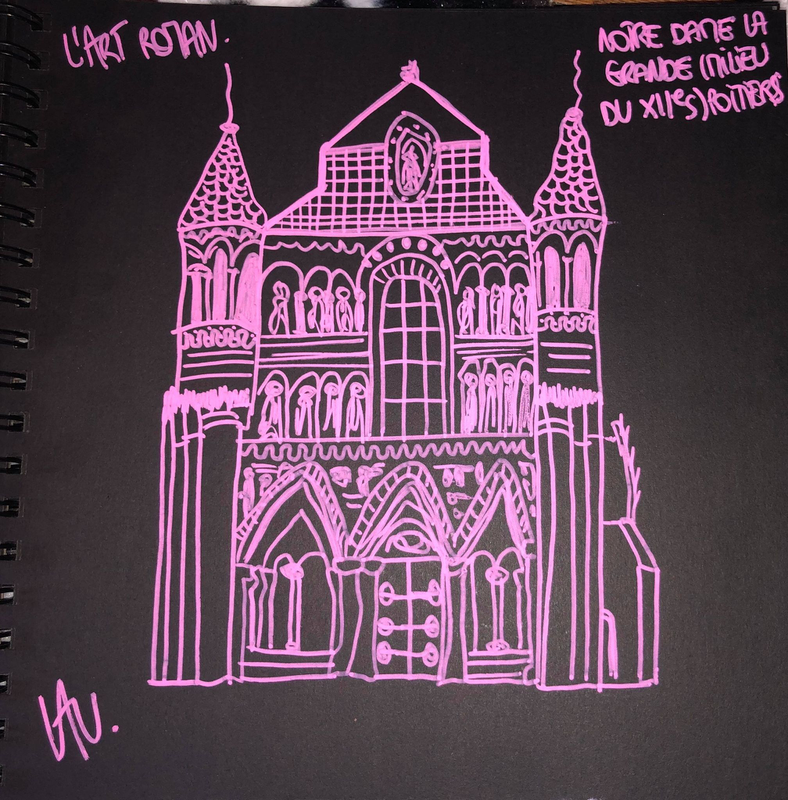 L'ART ROMAN.
NOTRE DAME LA
GRANDE (MILIEU
DU XIIes) POITIERS